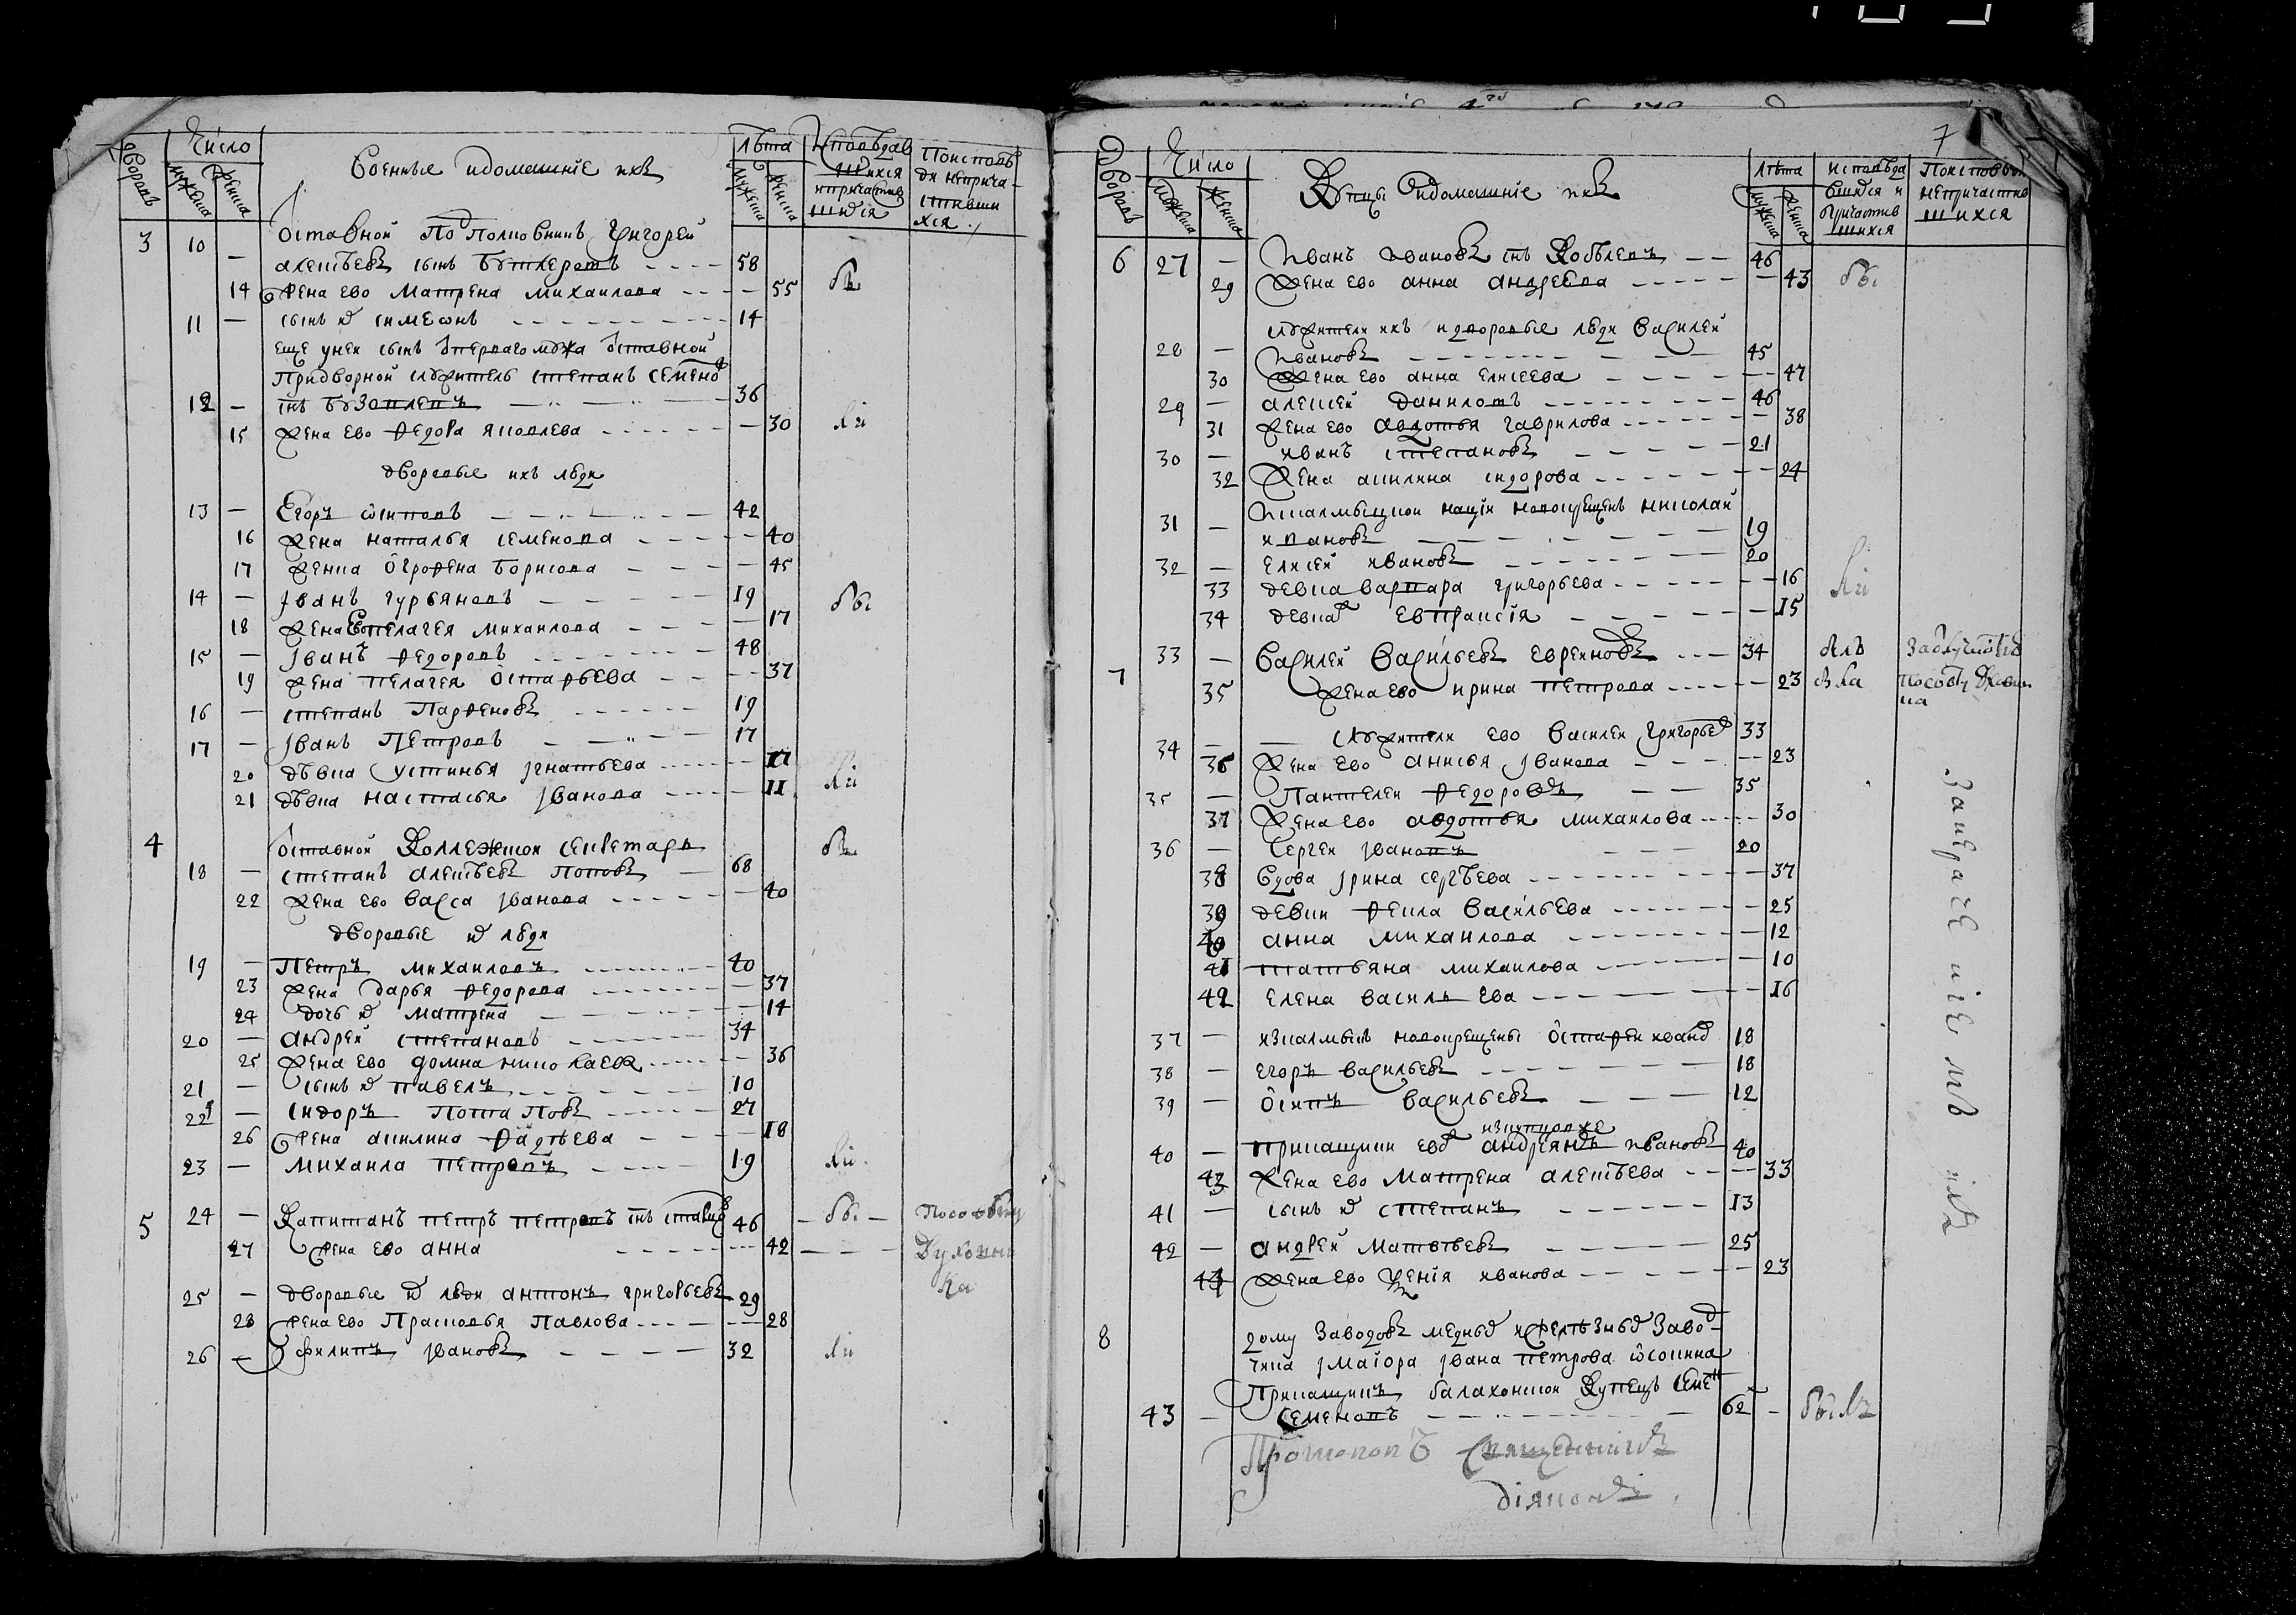 Число
Военные и домашніе ихъ
лѣта
Исповѣдав
шихся
и причастив
шихся
По исповѣ
ди неприча-
стивши
хся
дворовъ
мужеска
женска
мужеска
женска
3 10 Отставной Подполковникъ Григорей
— алексѣевъ сынъ Бутлеровъ 58
14 Жена ево Матрена Михаилова — 55 бы
11 — сынъ их симеонъ 14
еще у неи сынъ от перваго мужа отставной
Придворной служитель степанъ семено
12 — снъ бузовлевъ 36
15 Жена ево Федора яковлева — 30 ли
дворовые ихъ люди
13 — Егоръ осиповъ 42
16 Жена наталья семенова — 40
17 Женка огрофена борисова — 45
14 — Iванъ гурьяновъ 19 бы
18 Жена Ево пелагея михаилова — 17
15 — Iванъ федоровъ 48
19 Жена пелагея остафьева — 37
16 — степанъ Парфеновъ 19
17 — Iванъ Петровъ 17
20 дѣвка устинья игнатьева —
21 дѣвка настасья Iванова — 11 ли
4 отставной Коллежской секретарь бы
18 — степанъ алексѣевъ поповъ 68
22 Жена ево васса Iванова — 40
дворовые их люди
19 — Петръ михаиловъ 40
23 Жена дарья федорова — 37
24 дочь их матрена — 14
20 — андрей степановъ 34
25 Жена ево домна николаева — 36
21 — сынъ их павелъ 10
22 — сидоръ Потаповъ 27
26 Жена акилина фадѣева — 18
23 — михаила петровъ 19 ли
5 24 — Капитанъ петръ петровъ снъ 46 — бы —
27 Жена ево анна — 42 — — —
25 — дворовые их люди антонъ григорьевъ 29
28 Жена ево Прасковья Павлова — 28
26 — филипъ Iвановъ 32 ли
7
Дворовъ
Число
мужеска
женска
Купцы и домашніе ихъ
лѣта
мужеска
женска
исповѣда
вшихся и
причастив
шихся
По исповѣди
непричастив
шихся
6 27 — Иванъ Ивановъ снъ Кобылевъ 46
29 Жена ево анна андреева — 43 бы
служители ихъ и дворовые люди василей
28 — Ивановъ 45
30 Жена ево анна елисеева — 47
29 — алексей даниловъ 46
31 Жена ево авдотья гаврилова — 38
30 — иванъ степановъ 21
32 Жена акилина сидорова — 24
Iскалмыцкои нацiи новокрещенъ николаи
31 — ивановъ 19
32 — елисей ивановъ 20
33 девка варвара григорьева — 16 ли
34 девка евпраксiя — 15
7 33 — Василей Васильевъ евреиновъ 34
35 Жена ево ирина петрова — 23
34 — служители ево василеи григорье 33
36 Жена ево анисья Iванова — 23
35 — Пантелеи федоровъ 35
37 Жена ево авдотья михаилова — 30
36 — сергеи Iвановъ 20
38 вдова Iрина сергѣева — 37
39 девки фекла васильева — 25
40 анна михаилова — 12
41 татьяна михаилова — 10
42 елена васильева — 16
37 — искалмыкъ новокрещены остафеи ивано 18
38 — егоръ васильевъ 18
39 — осипъ васильевъ 12
40 — прикащики ево андреянъ ивановъ 40
43 Жена ево матрена алексѣева — 33
41 — сынъ их степанъ 13
42 — андрей матвѣевъ 25
44 Жена ево ксенiя иванова — 23
8 дому заводовъ медных и желѣзных заво-
чика Iмаiора Iвана петрова осокина
Прикащикъ балахонской купецъ семе
43 — семеновъ 62 — былъ
Протопопъ священникъ
дiаконъ